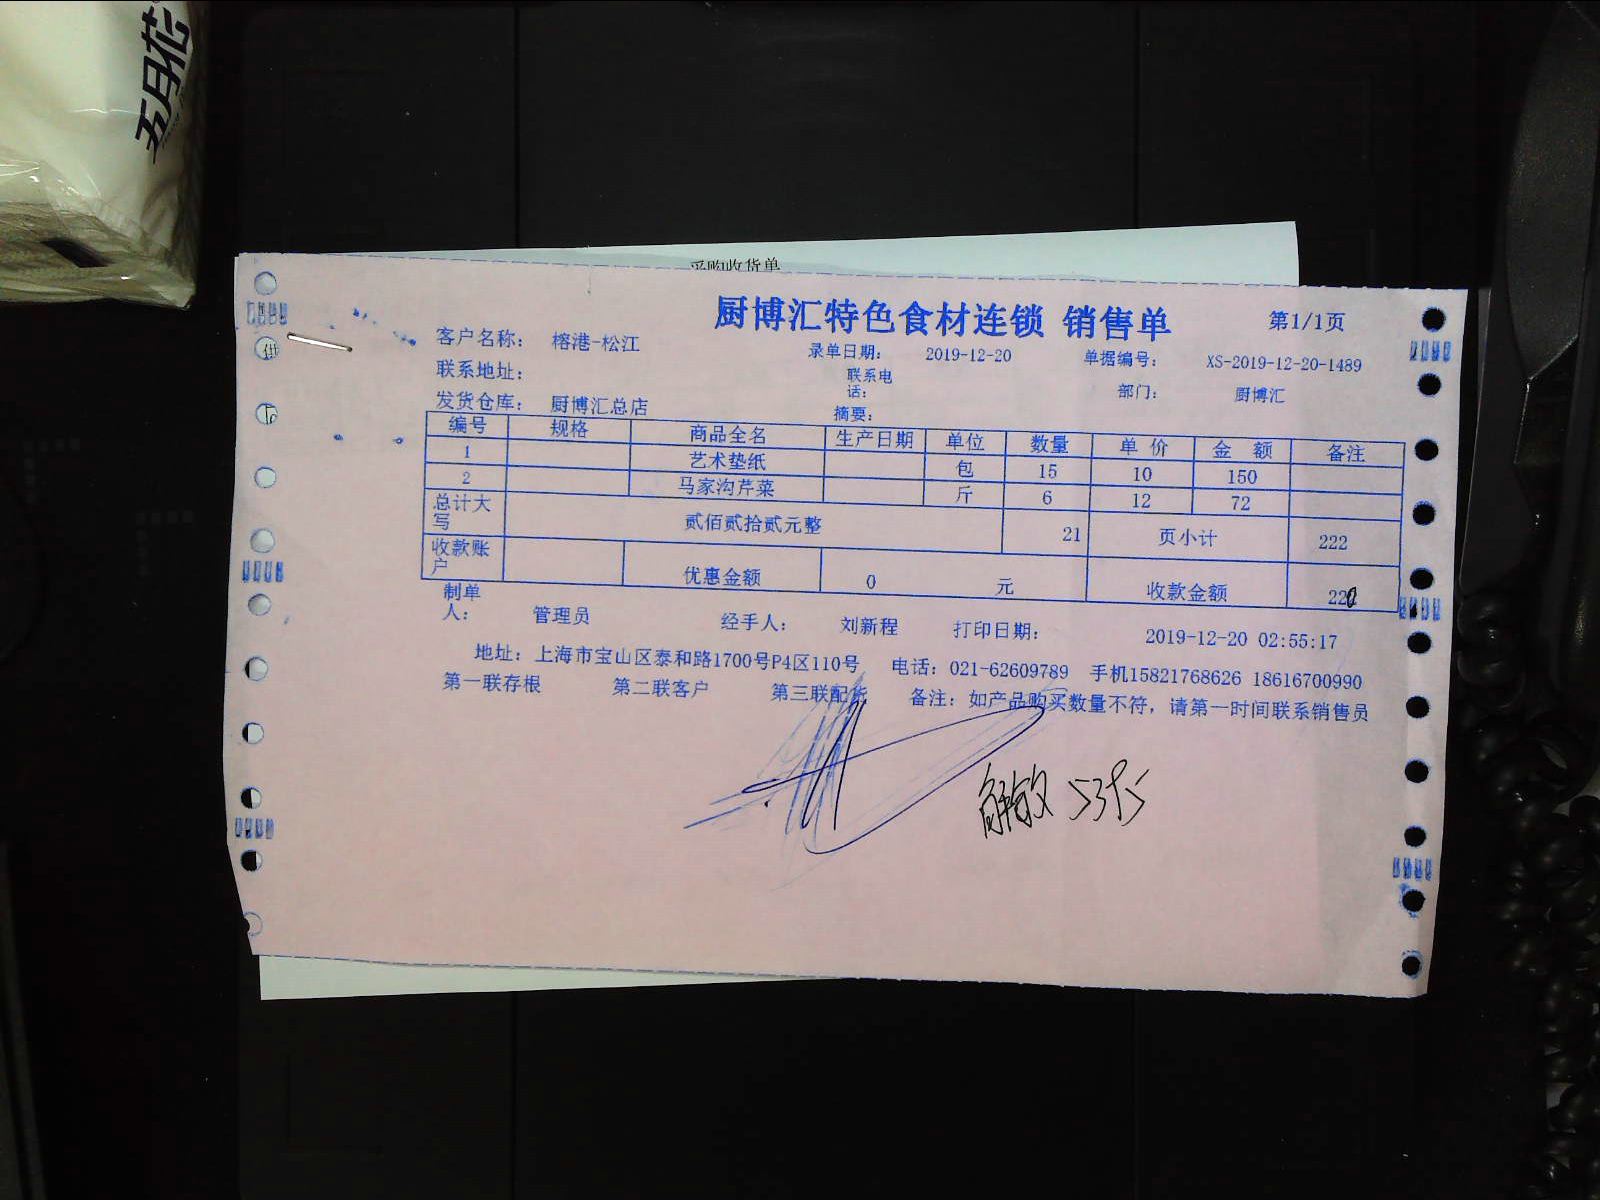 五月花
采购收货单
厨博汇特色食材连锁 销售单 第1/1页
客户名称: 榕港-松江 录单日期: 2019-12-20 单据编号: XS-2019-12-20-1489
联系地址: 联系电话: 部门: 厨博汇
发货仓库: 厨博汇总店 摘要:
编号 规格 商品全名 生产日期 单位 数量 单价 金额 备注
1 艺术垫纸 包 15 10 150
2 马家沟芹菜 斤 6 12 72
总计大写 贰佰贰拾贰元整 21 页小计 222
收款账户 优惠金额 0 元 收款金额 220
制单人: 管理员 经手人: 刘新程 打印日期: 2019-12-20 02:55:17
地址: 上海市宝山区泰和路1700号P4区110号 电话: 021-62609789 手机15821768626 18616700990
第一联存根 第二联客户 第三联配货 备注: 如产品购买数量不符, 请第一时间联系销售员